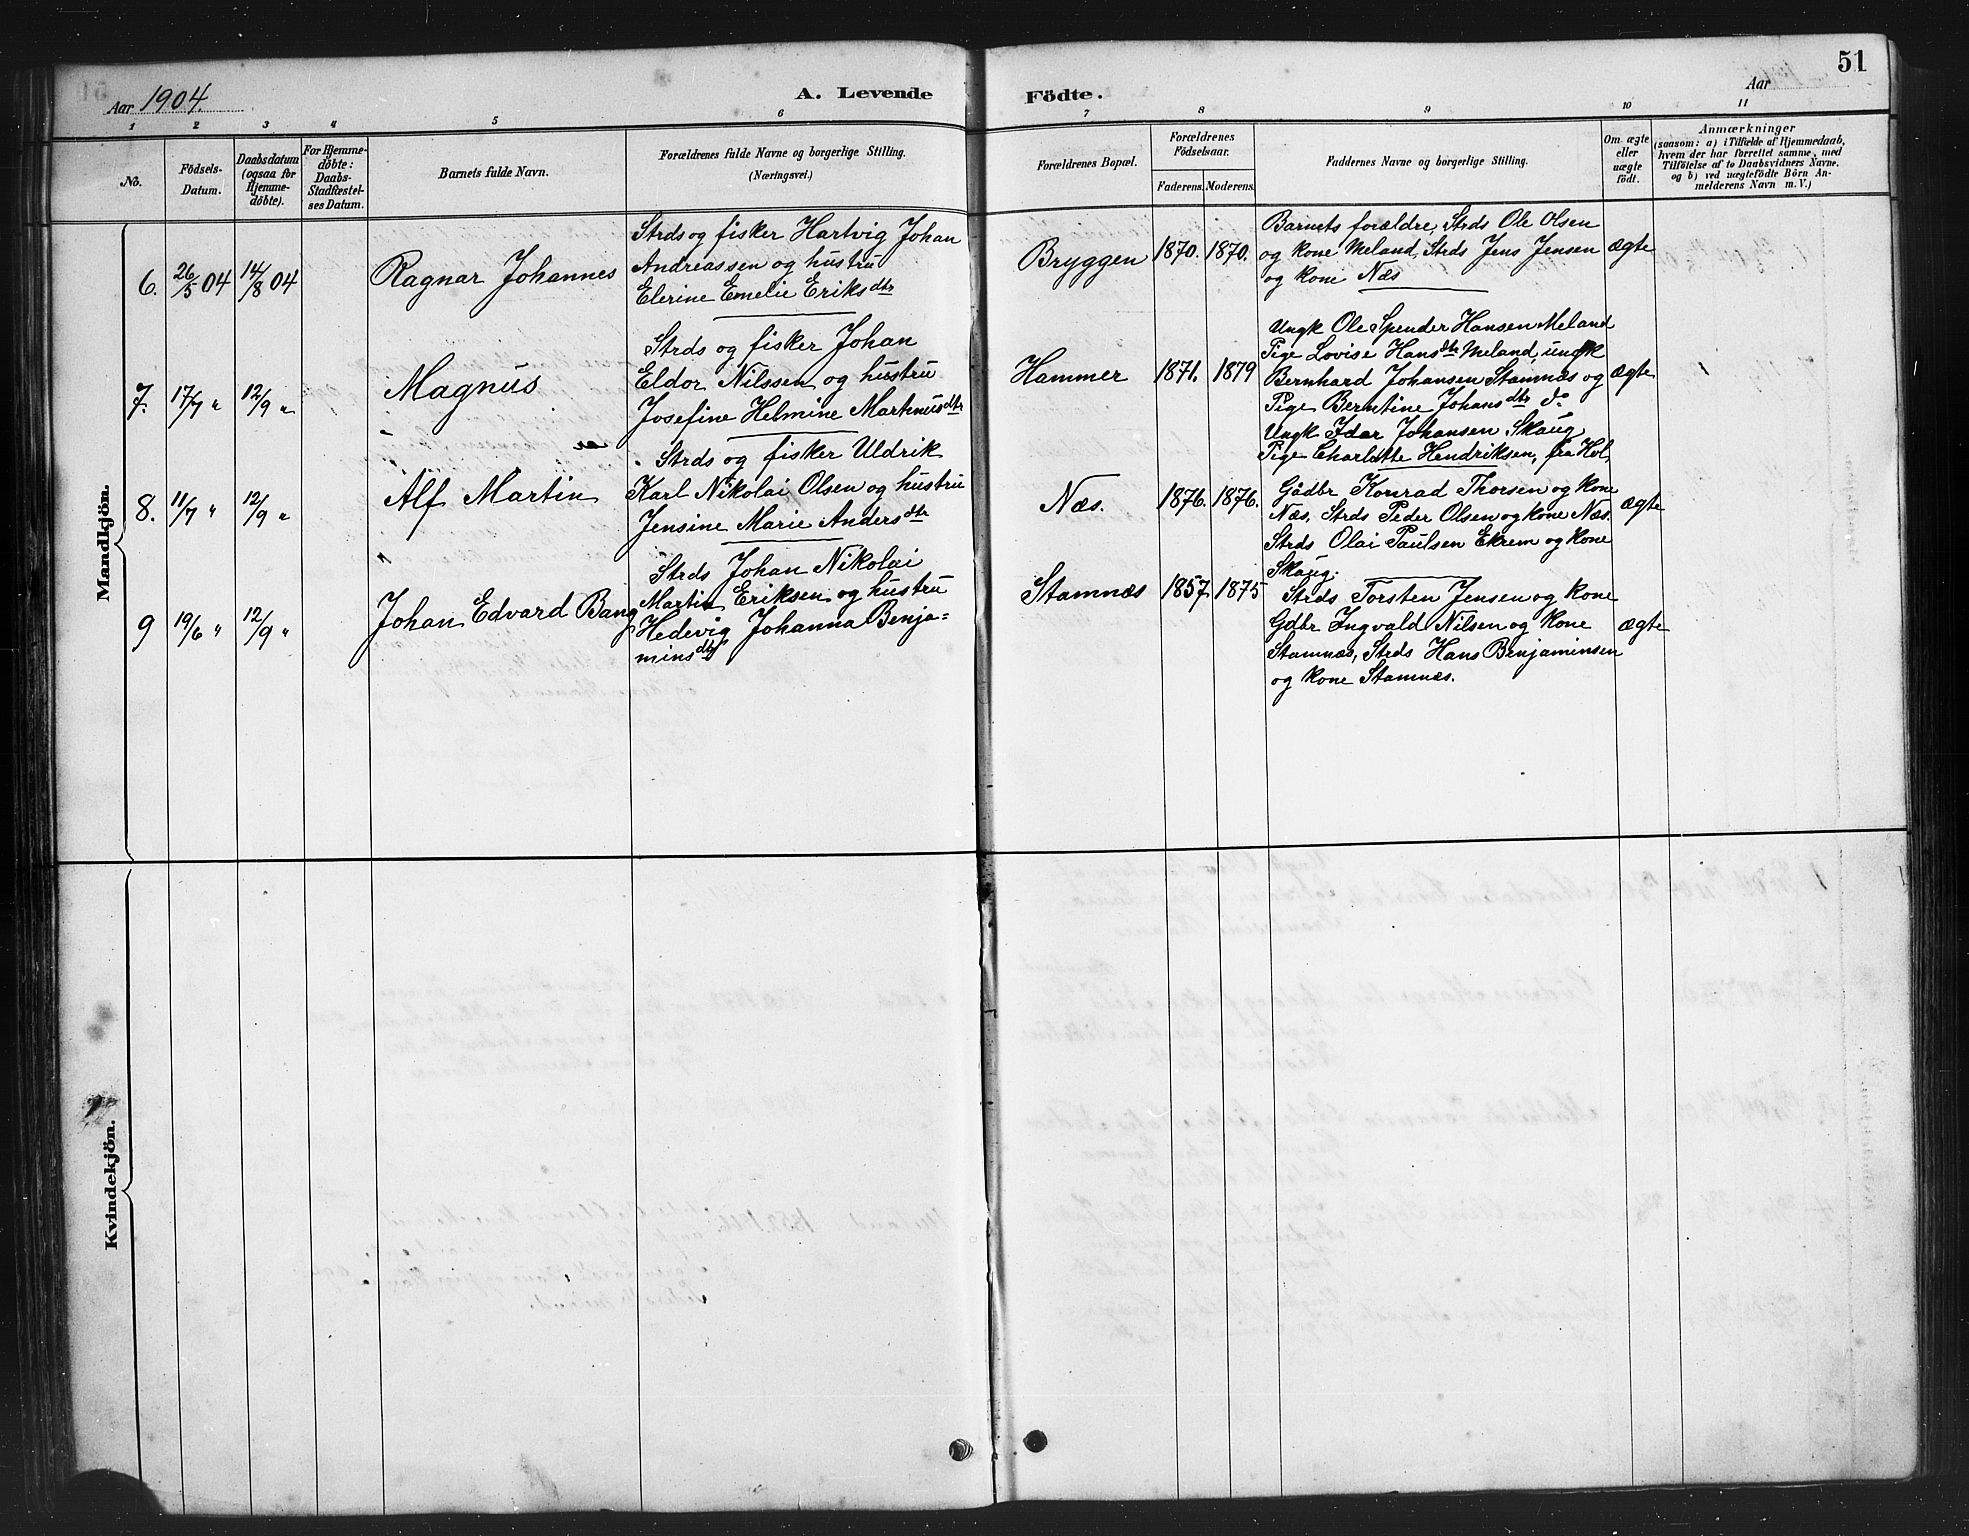 51
Aar 1904.
A. Levende
Födte.
Aar
1
2
3
4
5
6
7
8
9
10
11
No.
Födsels-
Datum.
Daabsdatum
(ogsaa for
Hjemme-
döbte).
For Hjemme-
döbte:
Daabs-
Stadfæstel-
ses Datum.
Barnets fulde Navn.
Forældrenes fulde Navne og borgerlige Stilling.
(Næringsvei.)
Forældrenes Bopæl.
Forældrenes
Födselsaar.
Faderens.
Moderens.
Faddernes Navne og borgerlige Stilling.
Om ægte
eller
uægte
födt.
Anmærkninger
(saasom: a) i Tilfælde af Hjemmedaab,
hvem der har forrettet samme, med
Tilföielse af to Daabsvidners Navne,
og b) ved uægtefödte Börn An-
melderens Navn m. V.)
Mandkjön.
6.
26/5 04
14/8 04
Ragnar Johannes
Strds og fisker Hartvig Johan
Andreassen og hustru
Elerine Emelie Eriksdtr
Bryggen
1870.
1870.
Barnets forældre, Strds Ole Olsen
og kone Meland, Strds Jens Jensen
og kone Næs
ægte
7.
17/7 "
12/9 "
Magnus
Strds og fisker Johan
Eldor Nilssen og hustru
Josefine Helmine Martinusdtr
Hammer
1871.
1879
Ungk Ole Spender Hansen Meland
Pige Lovise Hansdtr Meland, ungk
Bernhard Johansen Stamnæs og
Pige Berntine Johansdtr do
Ungk Idar Johansen Skaug
Pige Charlotte Hendriksen, fra Hol,
ægte
8.
11/7 "
12/9 "
Alf Martin
Strds og fisker Uldrik
Karl Nikolai Olsen og hustru
Jensine Marie Andersdtr
Næs.
1876.
1876.
Gådbr Konrad Thorsen og kone
Næs, Strds Peder Olsen og kone Næs.
Strds Olai Paulsen Ekrem og kone
Skaug.
ægte
9
19/6 "
12/9 "
Johan Edvard Bang
Strds Johan Nikolai
Martin Eriksen og hustru
Hedevig Johanna Benja=
minsdtr
Stamnæs
1857
1875
Strds Torsten Jensen og kone
Gdbr Ingvald Nilsen og kone
Stamnæs, Strds Hans Benjaminsen
og kone Stamnæs.
ægte
Kvindekjön.